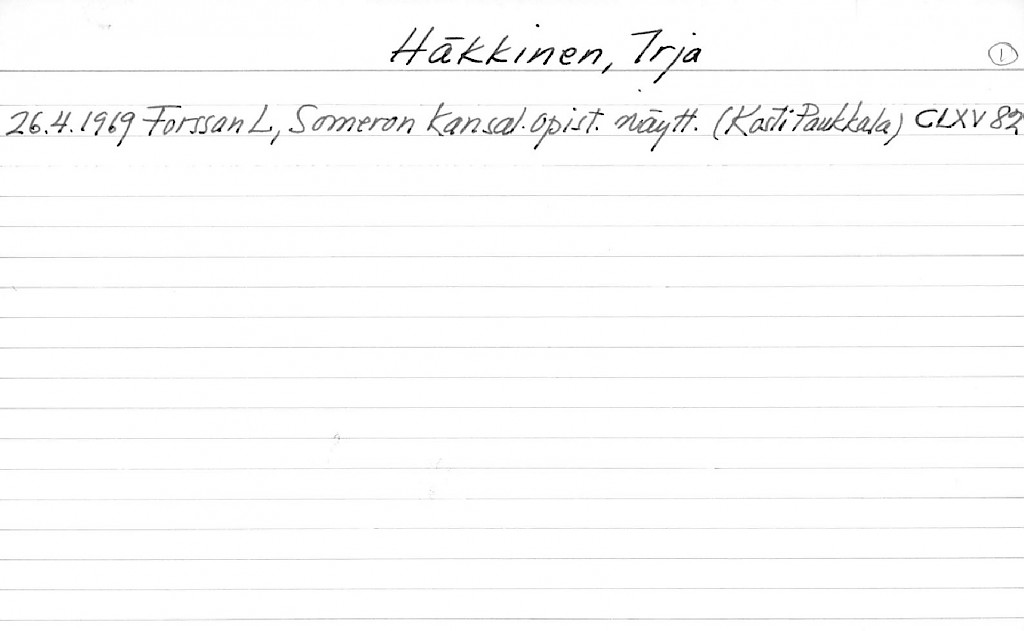 Häkkinen, Irja
1
26.4.1969 Forssan L, Someron kansal. opist. näytt. (Kosti Paukkala) CLXV 82